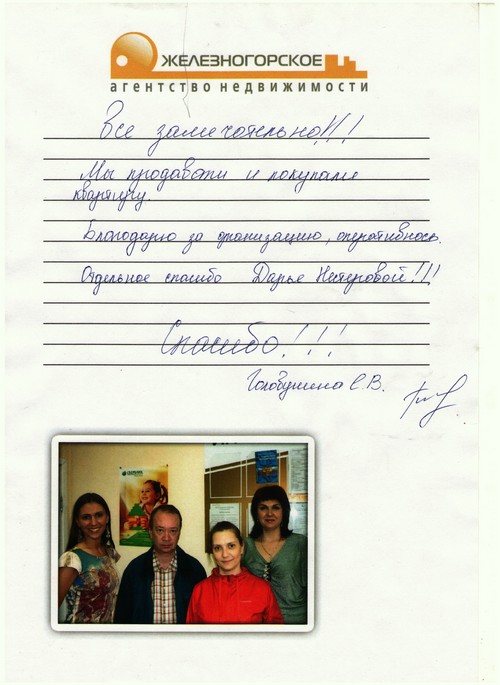 ЖЕЛЕЗНОГОРСКОЕ
агентство недвижимости
Все замечательно!!!
Мы продавали и покупали
квартиру.
Благодарю за организацию, оперативнось.
Отдельное спасибо Дарье Нестеровой!!!
Спасибо!!!
Е.В.